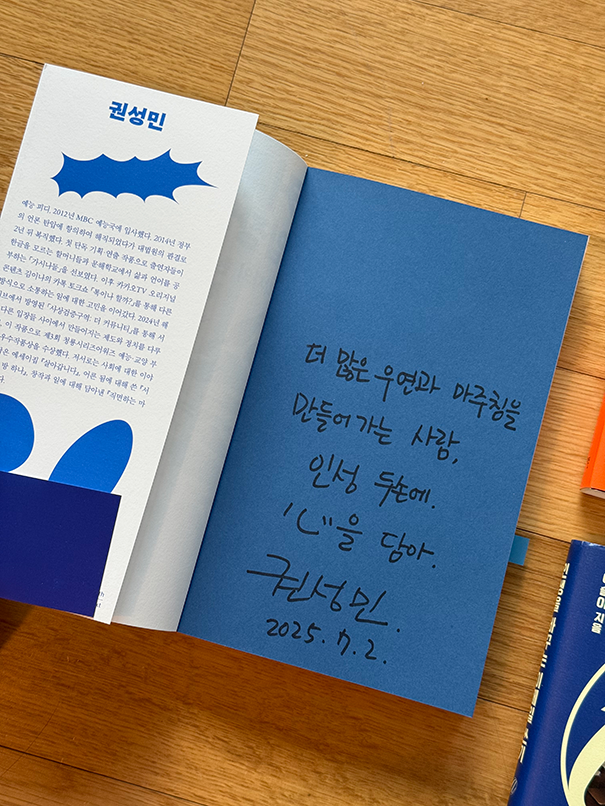 권성민
예능 피디. 2012년 MBC 예능국에 입사했다. 2014년 정부
의 언론 탄압에 항의하여 해직되었다가 대법원의 판결로
2년 뒤 복직했다. 첫 단독 기획·연출 작품으로 출연자들이
한글을 모르는 할머니들과 문해학교에서 삶과 언어를 공
부하는 「가시나들」을 선보였다. 이후 카카오TV 오리지널
콘텐츠 길이나의 카톡 토크쇼 「톡이나 할까?」를 통해 다른
방식으로 소통하는 일에 대한 고민을 이어갔다. 2024년 웨
이브에서 방영된 「사상검증구역: 더 커뮤니티」를 통해 서
다른 입장들 사이에서 만들어지는 제도와 정치를 다루
, 이 작품으로 제3회 청룡시리즈어워즈 예능·교양 부
우수작품상을 수상했다. 저서로는 사회에 대한 이야
은 에세이집 『살아갑니다』, 어른 됨에 대해 쓴 『서
방 하나』, 창작과 일에 대해 담아낸 『직면하는 마
다.
더 많은 우연과 마주침을
만들어 가는 사람,
인성 두손에.
'心'을 담아.
권성민.
2025. 7. 2.